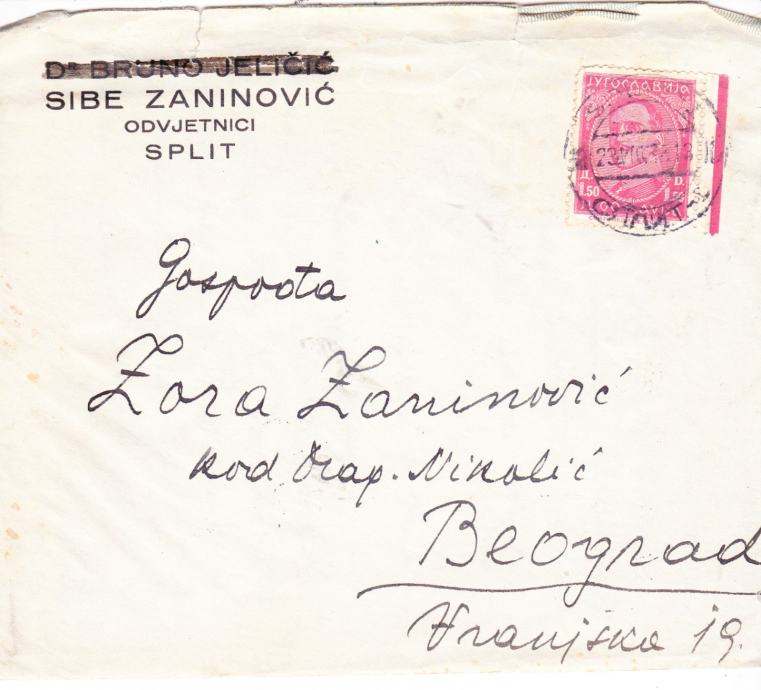 Dr BRUNO JELIČIĆ
SIBE ZANINOVIĆ
ODVJETNICI
SPLIT
ЈУГОСЛАВИЈА
Д. D.
1.50 1.50
СПЛИТ
Gospođa
Zora Zaninović
kod Nikolić
Beograd
Vranjska 19.